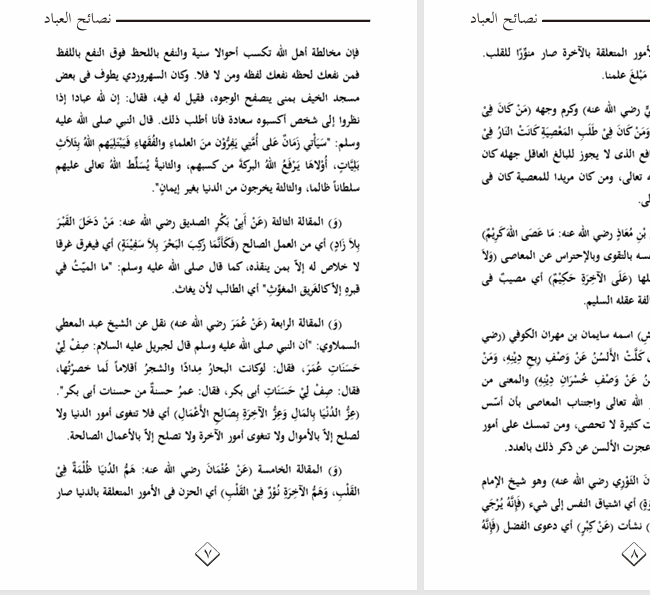 نصائح العباد
فإن مخالطة أهل الله تكسب أحوالا سنية والنفع باللحظ فوق النفع باللفظ
فمن نفعك لحظه نفعك لفظه ومن لا فلا. وكان السهروردي يطوف فى بعض
مسجد الخيف بمنى يتصفح الوجوه، فقيل له فيه، فقال: إن لله عبادا إذا
نظروا إلى شخص أكسبوه سعادة فأنا أطلب ذلك. قال النبي صلى الله عليه
وسلم: "سَيَأْتي زَمَانٌ عَلى أُمَّتِي يَفِرُّوْن منَ العلماءِ والفُقهاءِ فَيَبْتَلِيَهم اللهُ بِثَلاَثِ
بَلِيَّاتٍ، أُوْلاَهَا يَرْفَعُ اللهُ البركةَ من كسبهم، والثانيةُ يُسَلِّط اللهُ تعالى عليهم
سلطاناً ظالما، والثالثة يخرجون من الدنيا بغير إيمانٍ".
(وَ) المقالة الثالثة (عَنْ أَبِىْ بَكْرٍ الصديق رضي الله عنه: مَنْ دَخَلَ القَبْرَ
بِلاَ زَادٍ) أي من العمل الصالح (فَكَأَنَّمَا رَكِبَ البَحْرَ بِلاَ سَفِيْنَةٍ) أي فيغرق غرقا
لا خلاص له إلاّ بمن ينقذه، كما قال صلى الله عليه وسلم: "ما الميّتُ في
قبرهِ إلاّ كالغَريقِ المغوِّثِ" أي الطالب لأن يغاث.
(وَ) المقالة الرابعة (عَنْ عُمَرَ رضي الله عنه) نقل عن الشيخ عبد المعطي
السملاوي: "أن النبي صلى الله عليه وسلم قال لجبريل عليه السلام: صِفْ لِيْ
حَسَنَاتِ عُمَرَ، فقال: لوكانت البحارُ مِدادًا والشجرُ أقلاماً لَما حصرْتُها،
فقال: صِفْ لِيْ حَسَنَاتِ أبى بكر، فقال: عمرُ حسنةٌ من حسنات أبى بكر".
(عِزُّ الدُنْيَا بِالمَالِ وَعِزُّ الآخِرَةِ بِصَالِحِ الأَعْمَالِ) أي فلا تتغوى أمور الدنيا ولا
لصلح إلاّ بالأموال ولا تتغوى أمور الآخرة ولا تصلح إلاّ بالأعمال الصالحة.
(وَ) المقالة الخامسة (عَنْ عُثْمَانَ رضي الله عنه: هَمُّ الدُنيَا ظُلْمَةٌ فِىْ
القَلْبِ، وَهَمُّ الآخِرَةِ نُوْرٌ فِىْ القَلْبِ) أي الحزن فى الأمور المتعلقة بالدنيا صار
٧
نصائح العباد
المتعلقة بالآخرة صار منوِّرًا للقلب.
مَبْلغَ علمنا.
رضي الله عنه) وكرم وجهه (مَنْ كَانَ فِىْ
وَمَنْ كَانَ فِىْ طَلَبِ المَعْصِيَةِ كَانَتْ النَارُ فِىْ
الذى لا يجوز للبالغ العاقل جهله كان
تعالى، ومن كان مريدا للمعصية كان فى
بْنِ مُعَاذٍ رضي الله عنه: مَا عَصَى اللهَ كَرِيْمٌ)
بالتقوى وبالإحتراس عن المعاصى (وَلاَ
(عَلَى الآخِرَةِ حَكِيْمٌ) أي مصيبٌ فى
عقله السليم.
اسمه سايمان بن مهران الكوفي (رضي
كَلَّتْ الأَلْسُنُ عَنْ وَصْفِ رِبحِ دِيْنِهِ، وَمَنْ
عَنْ وَصْفِ خُسْرَانِ دِيْنِهِ) والمعنى من
الله تعالى واجتناب المعاصى بأن أسّس
كثيرة لا تحصى، ومن تمسك على أمور
عجزت الألسن عن ذكر ذلك بالعدد.
رضي الله عنه) وهو شيخ الإمام
أي اشتياق النفس إلى شيء (فَإِنَّهُ يُرْجَي
نشأت (عَنْ كِبْرٍ) أي دعوى الفضل (فَإِنَّهُ
٨